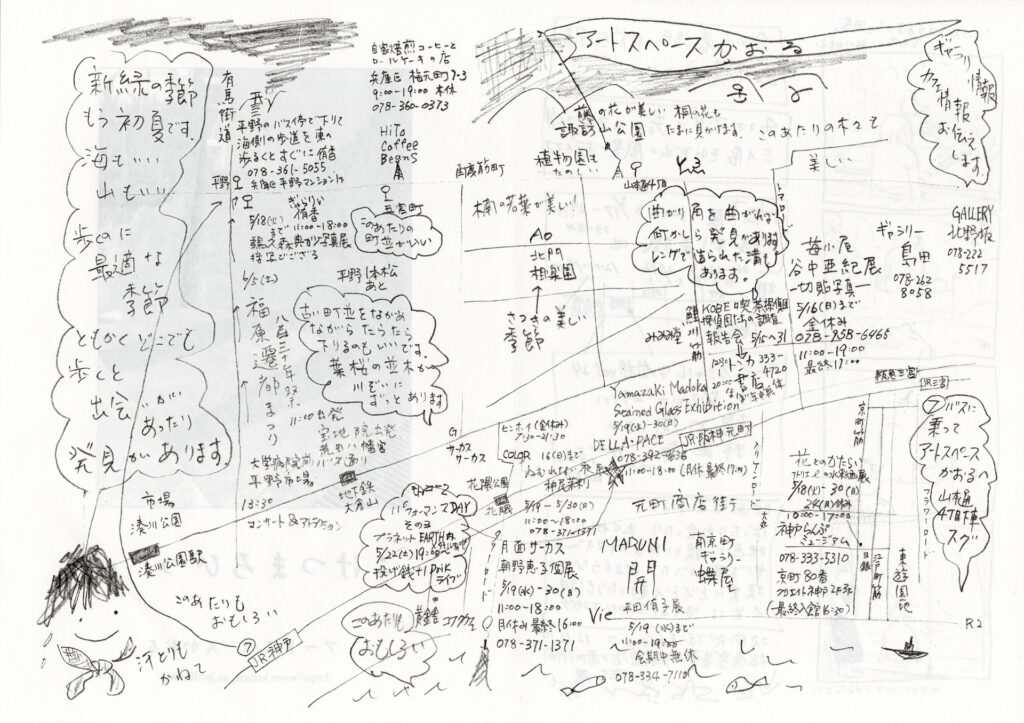 アートスペースかおる
ギャラリー情報
カフェ情報
お伝え
します。
新緑の季節
もう初夏です。
海もいい
山もいい
歩くのに
最適な
季節
ともかくどこでも
歩くと
出会いが
あったり
発見があります。
有馬街道
平野のバス停で下りて
海側の歩道を東へ
歩くとすぐに侑香
078-361-5055
兵庫区平野マンション1F
平野
ぎゃらりい
侑香
5/18(火)
まで 11:00-18:00
6/5(土)
福原遷都まつり
八百三十年祭
11:00出発
宝地院出発
荒田八幡宮
バス通り
大学病院前
平野市場
13:30
コンサート&アトラクション
自家焙煎コーヒーと
ロールケーキの店
兵庫区楠元町7-3
9:00-19:00 木休
078-360-0373
HiTo
Coffee
Beans
五宮町
このあたりの
町並がいい
平野1本松
あと
古い町並をながめ
ながらたらたら
下りるのもいいです。
葉桜の並木が
川ぞいに
ずっとあります
地下鉄
大倉山
市場
湊川公園
湊川公園駅
このあたりも
おもしろい
汗とりも
かねて
⑦
JR神戸
藤の花が美しい 桐の花も
諏訪山公園 たまに見かけます。
このあたりの木々も
美しい
植物園も
たのしい
楠の若葉が美しい
山本通4丁目
トアロード
北門
相楽園
さつきの美しい
季節
曲がり角を曲がれば
何かしら発見があります
レンガで造られた溝も
あります。
鯉川筋
KOBE喫茶探偵
探偵団たちの調査
報告会 5/15〜31
トンカ 333-
書店 4720
20:00
苺小屋
谷中亜紀展
―切貼写真―
5/16(日)まで
金休み
078-958-6465
11:00-19:00
最終17:00
ギャラリー
島田
078-262
8058
GALLERY
北野坂
078-222
5517
Yamazaki Madoka
Stained Glass Exhibition
5/19(水)-30(日)
DELLA-PACE
078-392-7636
11:00-18:00 (月休 最終17:00)
JR・阪神元町
阪急三宮
JR三宮
G
サーカス
サーカス
ヒンホイ(金休み)
7:30-21:30
COLOR 16(日)まで
花隈公園
北風
5/19-5/30(日)
11:00〜18:00
078-371-1371
パフォーマンスDAY
その3
プラネットEARTH内
5/22(土)19:00〜
投げ銭+1Drink
ライブ
このあたりも
おもしろい
月面サーカス
朝野恵子個展
5/19(水)-30(日)
11:00-18:00
月休み 最終16:00
078-371-1371
元町商店街
MARUNI
南京町
ぎゃらりい
蝶屋
Vie
平田侑子展
5/19(水)まで
11:00-19:00
会期中無休
078-334-7110
花とのかたらい
アトリエの水彩画展
5/18(火)-30(日)
24(月)休み
10:00-17:00
神戸らんぷ
ミュージアム
078-333-5310
京町80番
クリエイト神戸2F3F
(最終入館16:30)
京町筋
江戸町筋
東遊園地
フラワーロード
⑦バスに
乗って
アートスペース
かおるへ
山本通
4下車
スグ
R2